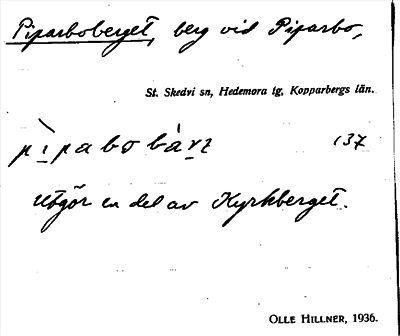 Piparboberget, berg vid Piparbo,
St. Skedvi sn, Hedemora tg, Kopparbergs län.
pìpabobàrz 137
Utgör en del av Kyrkberget.
OLLE HILLNER, 1936.